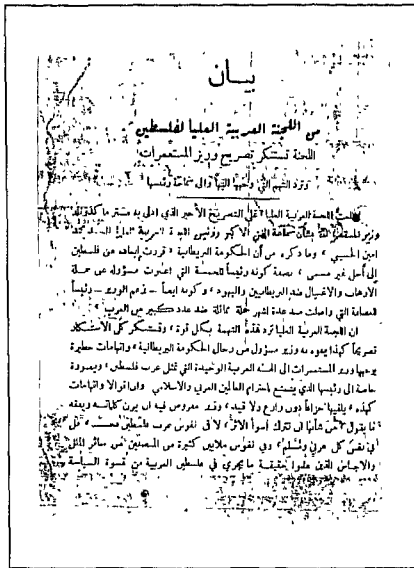 بيان
من اللجنة العربية العليا لفلسطين
اللجنة تستنكر تصريح وزير المستعمرات
وترد التهم التي وجهها اليها والى سماحة رئيسها
اللجنة العربية العليا على التصريح الأخير الذي ادلى به مستر ماكدونالد
وزير بشأن سماحة المفتي الاكبر ورئيس اللجنة العربية العليا السيد محمد
امين الحسيني، وما ذكره من أن الحكومة البريطانية قررت إبعاده عن فلسطين
إلى أجل غير مسمى، بصفة كونه رئيساً للعصبة التي اعتبرت مسؤولة عن حملة
الارهاب والاغتيال ضد البريطانيين واليهود، وكونه ايضاً - بزعم الوزير - رئيساً
للعصابة التي واصلت منذ عدة اشهر حملة مماثلة ضد عدد كبير من العرب
ان اللجنة العربية العليا ترد هذه التهمة بكل قوة، وتستنكر كل الاستنكار
تصريحاً كهذا يفوه به وزير مسؤول من رجال الحكومة البريطانية، واتهامات خطيرة
يوجهها وزير المستعمرات الى الهيئة العربية الوحيدة التي تمثل عرب فلسطين، وبصورة
خاصة الى رئيسها الذي يتمتع باحترام العالمين العربي والاسلامي وان اقوالا واتهامات
كهذه، يلقيها جزافاً بدون رادع ولا قيد، وزير مفروض فيه ان يزن كلماته ويفقه
ما يقول من شأنها ان تترك أسوأ الأثر، لا في نفوس عرب فلسطين بل
في نفس كل عربي ومسلم، وفي نفوس ملايين كثيرة من المنصفين من سائر الملل
والاجناس الذين علموا بحقيقة ما يجري في فلسطين العربية من قسوة السياسة